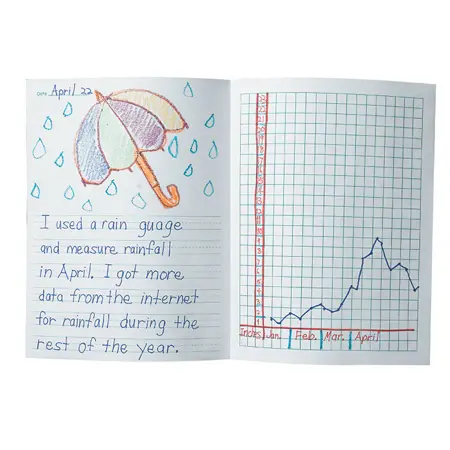 Date April 22
I used a rain guage
and measure rainfall
in April. I got more
data from the internet
for rainfall during the
rest of the year.
9
8
7
6
5
4
3
2
1
Inches Jan. Feb. Mar. April